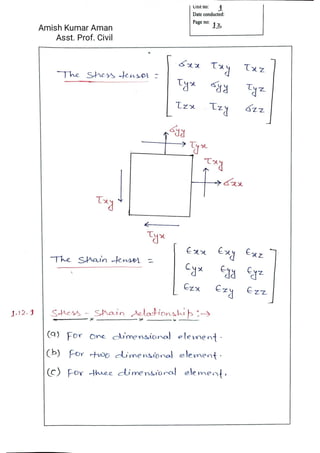 Unit No: 1
Date conducted:
Page no: 13.
Amish Kumar Aman
Asst. Prof. Civil
The Stress tensor = [ σxx τxy τxz
τyx σyy τyz
τzx τzy σzz ]
σyy
τyx
τxy
σxx
τxy
τyx
The Strain tensor = [ ϵxx ϵxy ϵxz
ϵyx ϵyy ϵyz
ϵzx ϵzy ϵzz ]
1.12.1 Stress - Strain relationship :→
(a) For one dimensional element.
(b) For two dimensional element.
(c) For three dimensional element.